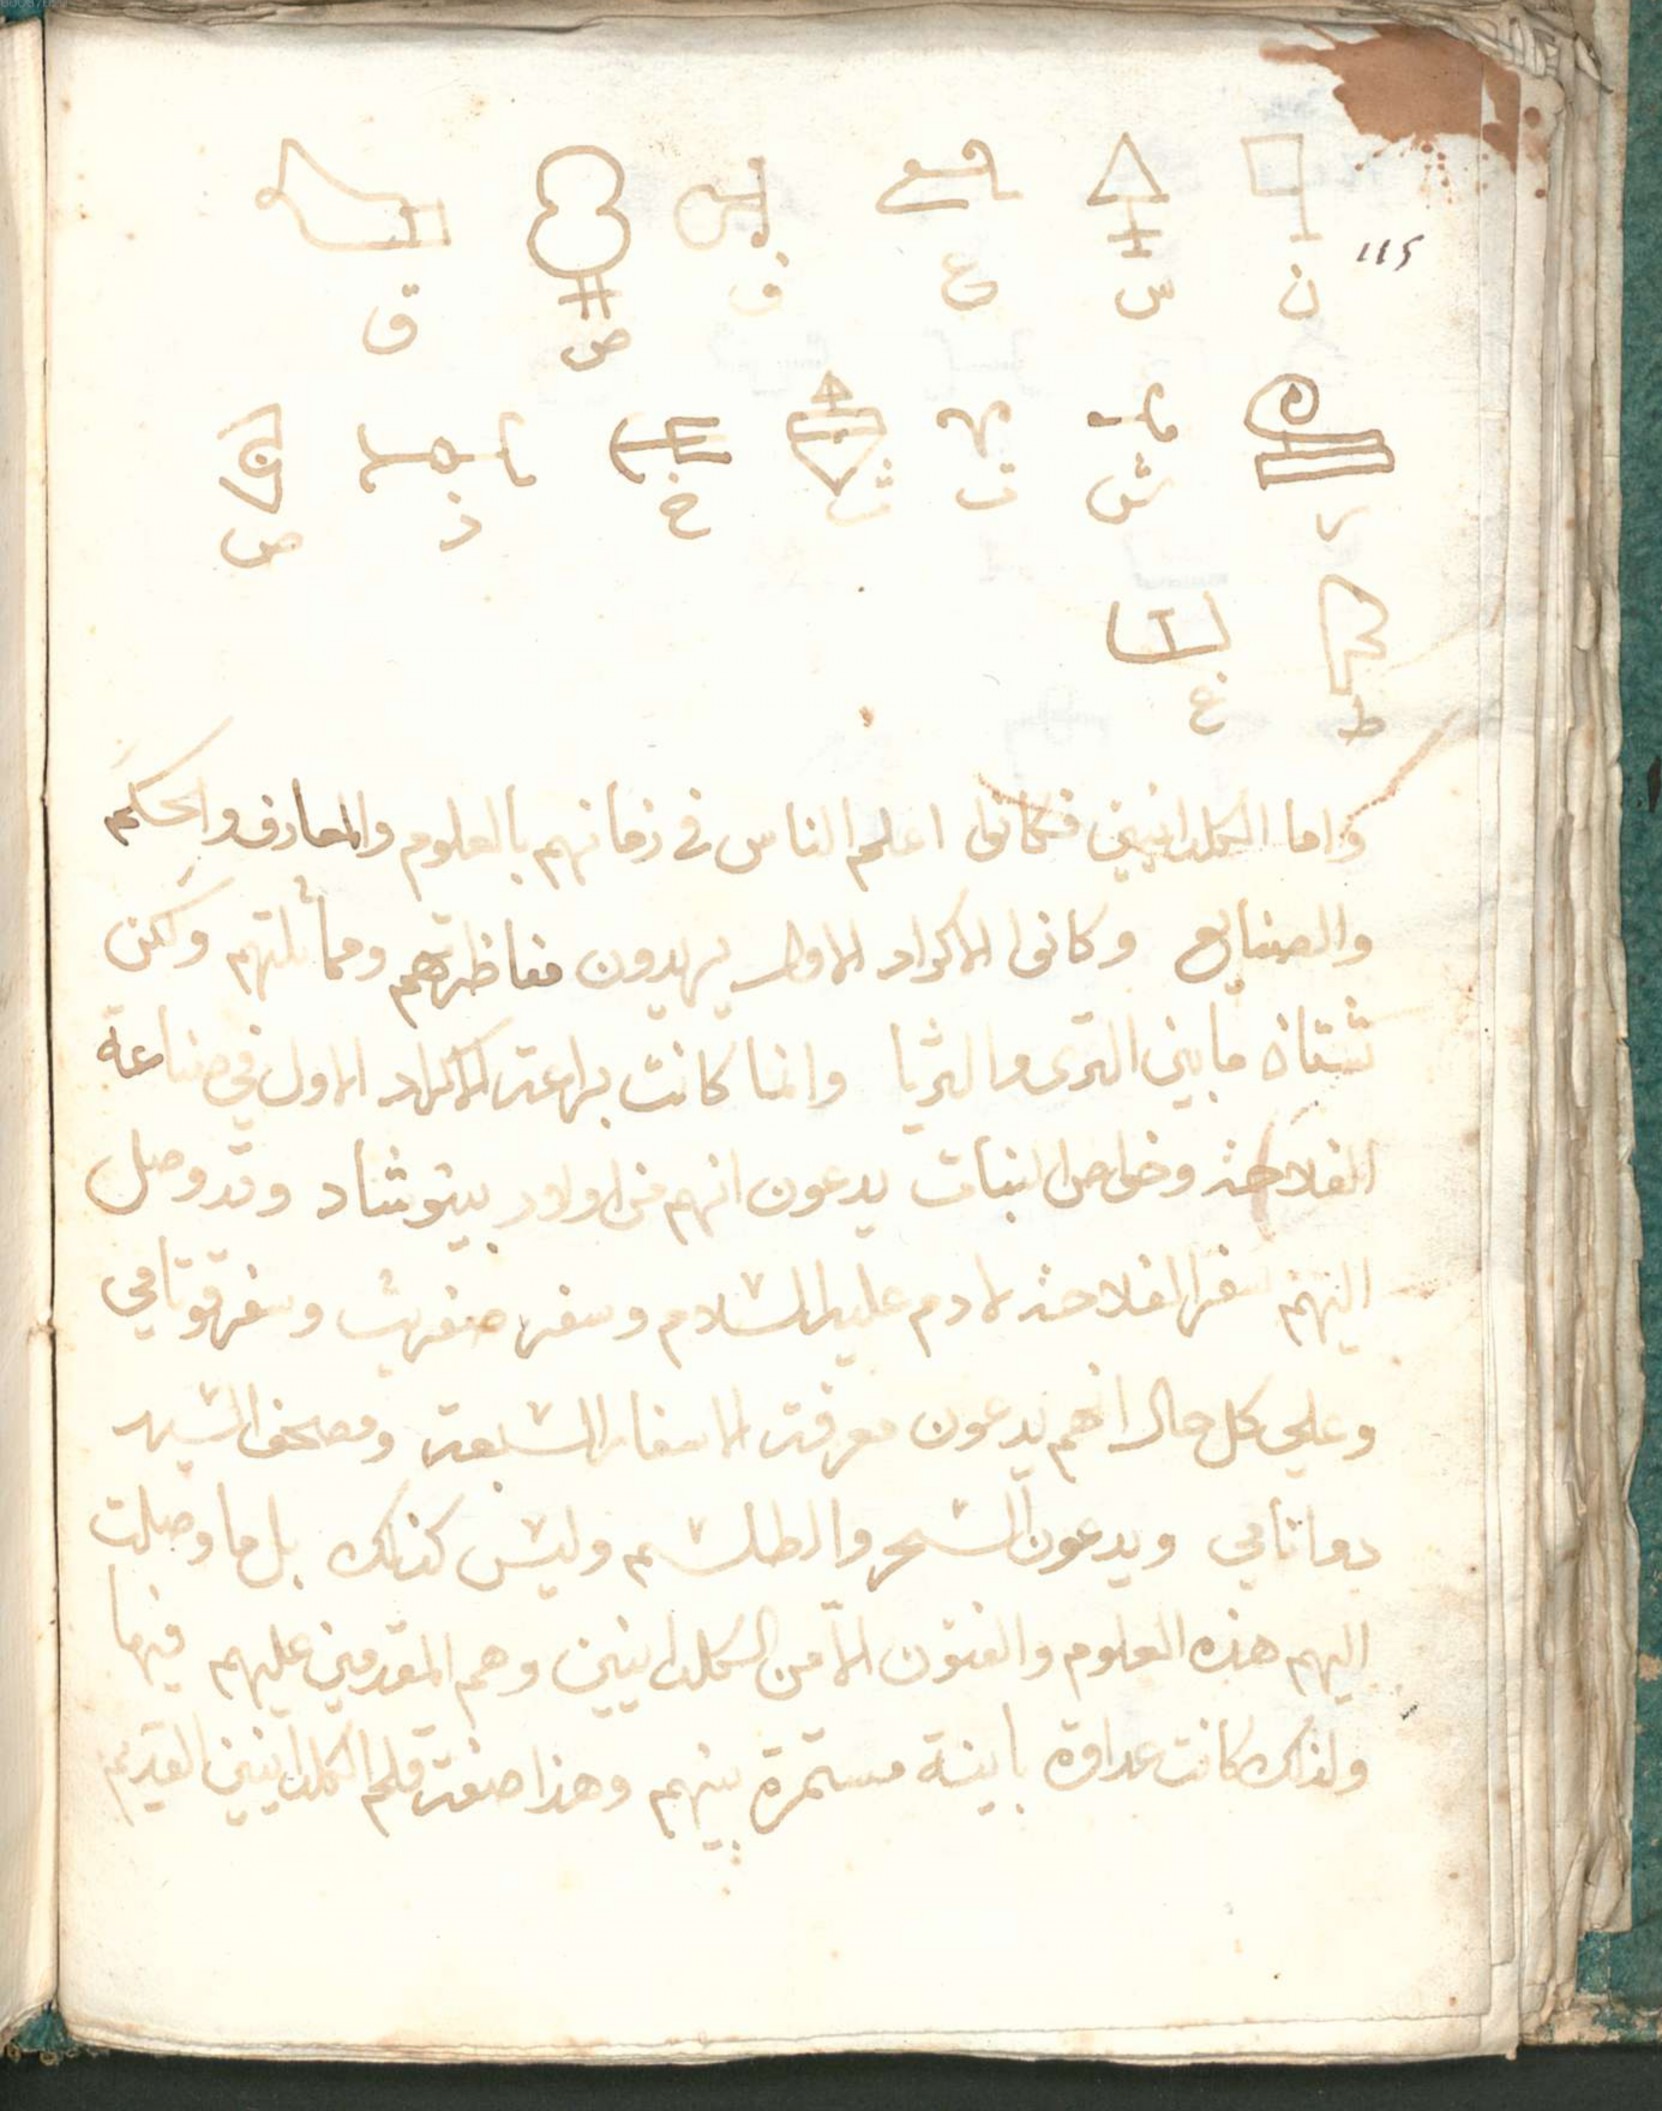 115
ن س ع ف ص ق
ر ش ت ث خ ذ ض
ط غ
واما الكلدانيين فكانوا اعلم الناس في زمانهم بالعلوم والمعارف والحكم
والصنايع وكانوا الاكراد الاول يريدون مناظرتهم ومماثلتهم ولكن
شتان ما بين الثرى والثريا وانما كانت براعة الاكراد الاول في صناعة
الفلاحة وخواص النبات يدعون انهم من اولاد بينوشاد وقد وصل
اليهم سفر الفلاحة لادم عليه السلام وسفر صغريث وسفر قوثامي
وعلى كل حال انهم يدعون معرفة الاسفار السبعة ومصحف السيد
دوانامي ويدعون السحر والطلسم وليس كذلك بل ما وصلت
اليهم هذه العلوم والفنون الا من الكلدانيين وهم المقدمين عليهم فيها
ولذلك كانت عداوة باينة مستمرة بينهم وهذا صفة قلم الكلدانيين القديم